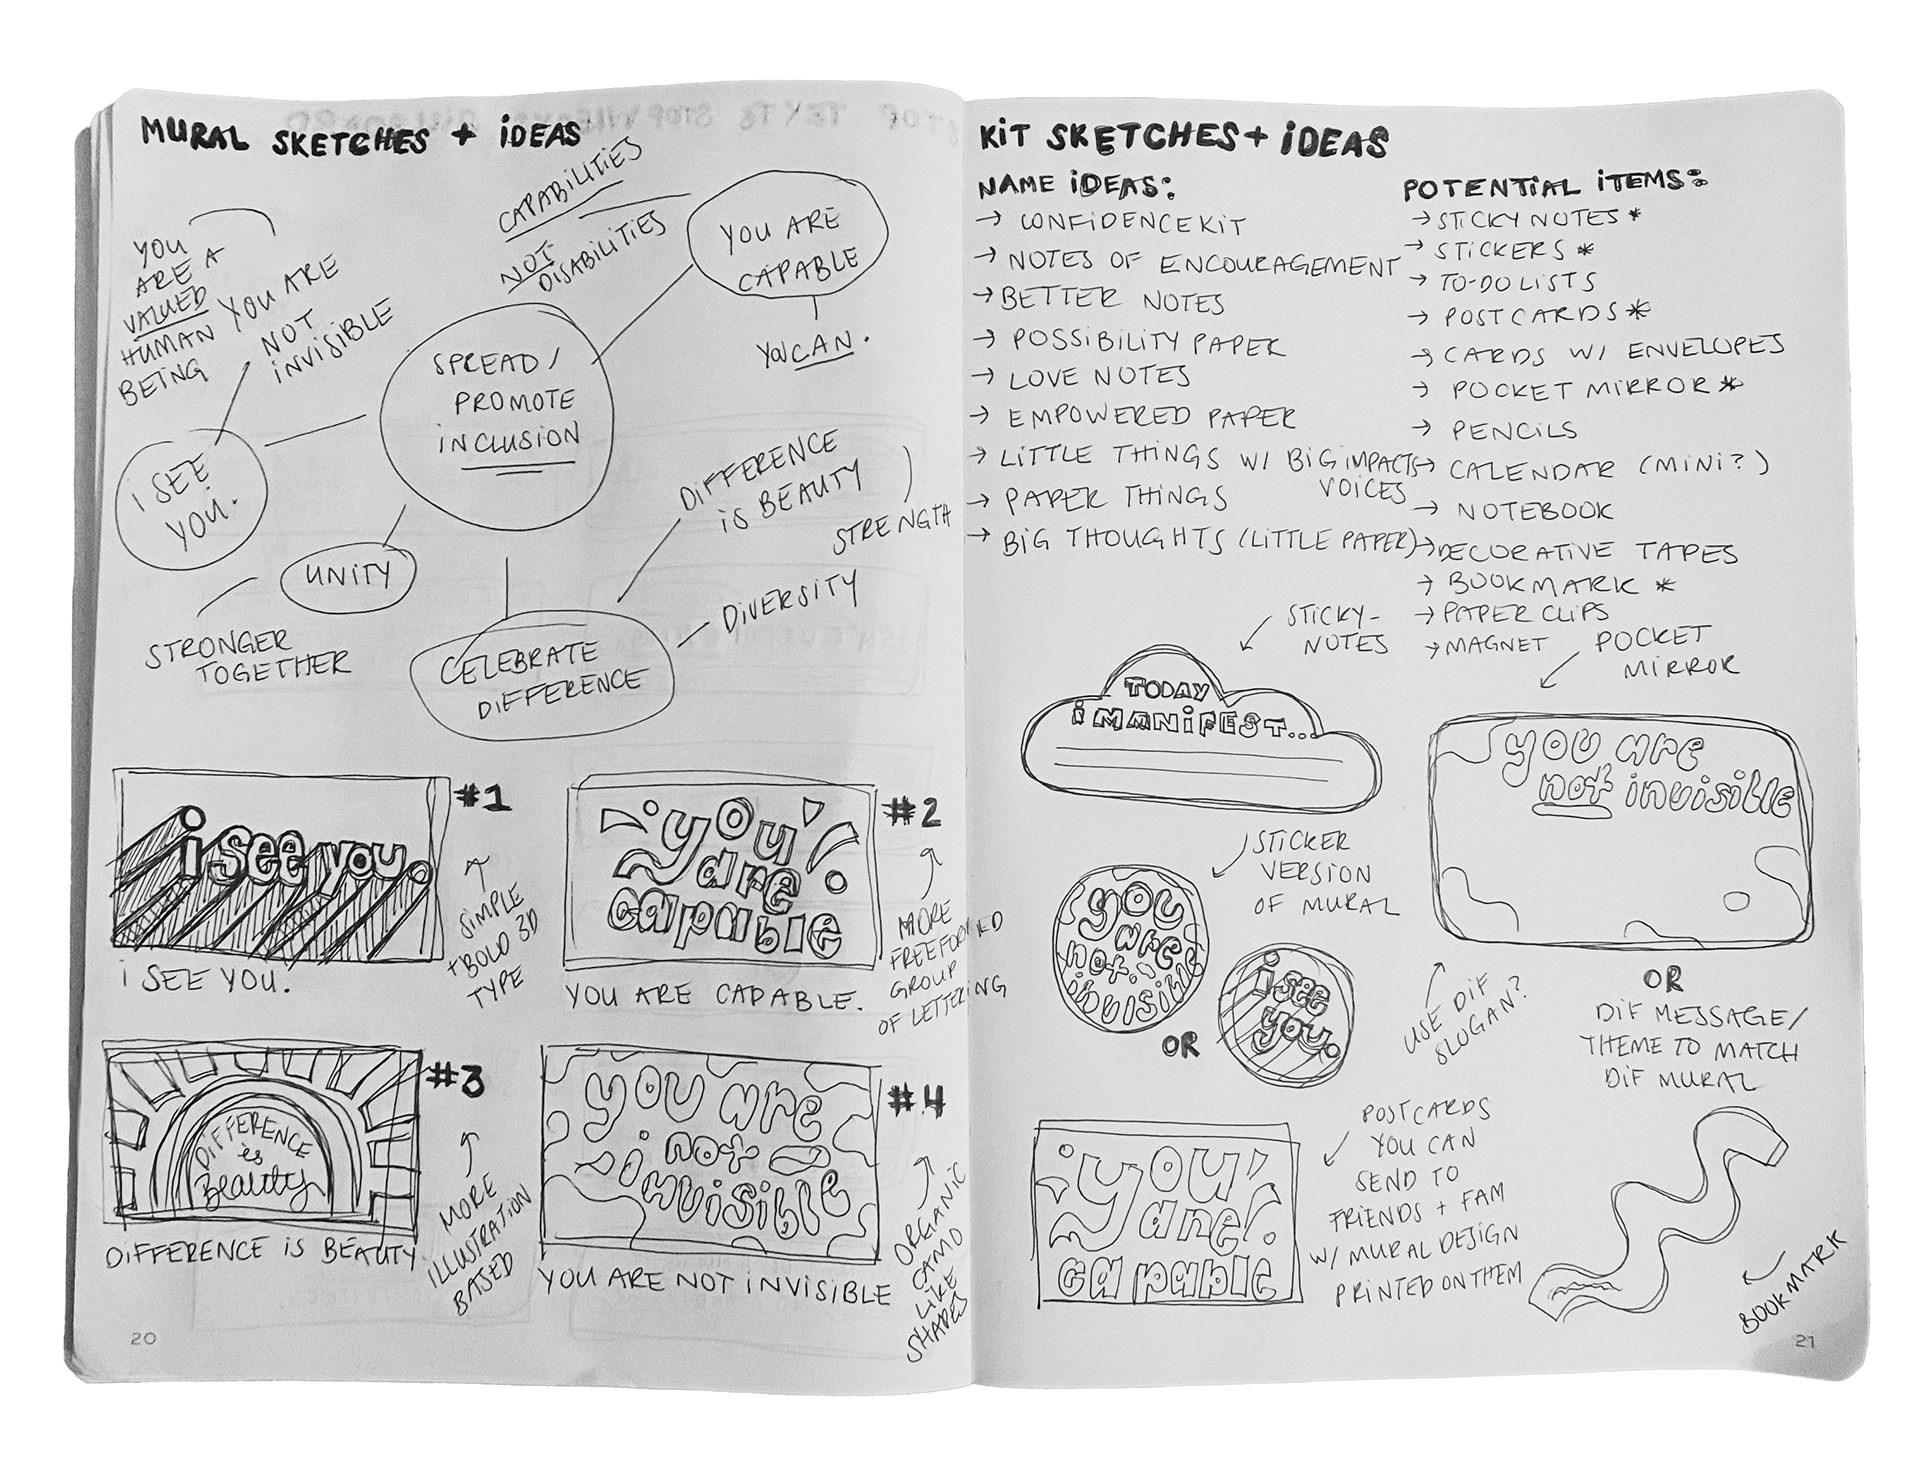 MURAL SKETCHES + iDEAS
CAPABILITIES
NOT
DiSABILITIES
YOU ARE
CAPABLE
YOU CAN.
YOU
ARE A
VALUED
HUMAN
BEING
YOU ARE
NOT
iNViSiBLE
SPREAD/
PROMOTE
iNCLUSiON
i SEE
YOU.
UNITY
STRONGER
TOGETHER
DiFFERENCE
iS BEAUTY
STRENGTH
DiVERSiTY
CELEBRATE
DiFFERENCE
i see you.
#1
SiMPLE
+ BOLD 3D
TYPE
i SEE YOU.
you
are
capable
#2
MORE
FREEFORMED
GROUP
OF LETTERING
YOU ARE CAPABLE.
DiFFERENCE
is
Beauty
#3
MORE
iLLUSTRATiON
BASED
DiFFERENCE iS BEAUTY
you are
not
invisible
#4
ORGANiC
CAMO
LiKE
SHAPES
YOU ARE NOT iNViSiBLE
20
KiT SKETCHES + iDEAS
NAME iDEAS:
→ CONFiDENCE KiT
→ NOTES OF ENCOURAGEMENT
→ BETTER NOTES
→ POSSiBiLiTY PAPER
→ LOVE NOTES
→ EMPOWERED PAPER
→ LiTTLE THiNGS W/ BiG iMPACTS
VOiCES
→ PAPER THiNGS
→ BiG THOUGHTS (LiTTLE PAPER)
POTENTiAL iTEMS:
→ STiCKY NOTES *
→ STiCKERS *
→ TO-DO LiSTS
→ POSTCARDS *
→ CARDS W/ ENVELOPES
→ POCKET MiRROR *
→ PENCiLS
→ CALENDAR (MiNi?)
→ NOTEBOOK
→ DECORATiVE TAPES
→ BOOKMARK *
→ PAPER CLiPS
→ MAGNET
STiCKY-
NOTES
TODAY
i MANiFEST...
POCKET
MiRROR
you are
not invisible
STiCKER
VERSiON
OF MURAL
you
are
not
invisible
OR
i see
you.
USE DiF
SLOGAN?
OR
DiF MESSAGE/
THEME TO MATCH
DiF MURAL
you
are
capable
POSTCARDS
YOU CAN
SEND TO
FRiENDS + FAM
W/ MURAL DESiGN
PRiNTED ON THEM
BOOKMARK
21